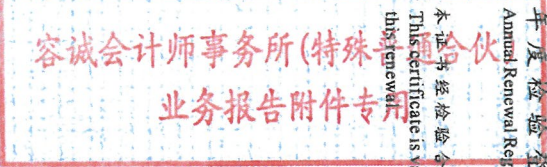 容诚会计师事务所(特殊普通合伙
业务报告附件专用
年度检验登
Annual Renewal Reg
本证书经检验合
This certificate is v
this renewal.